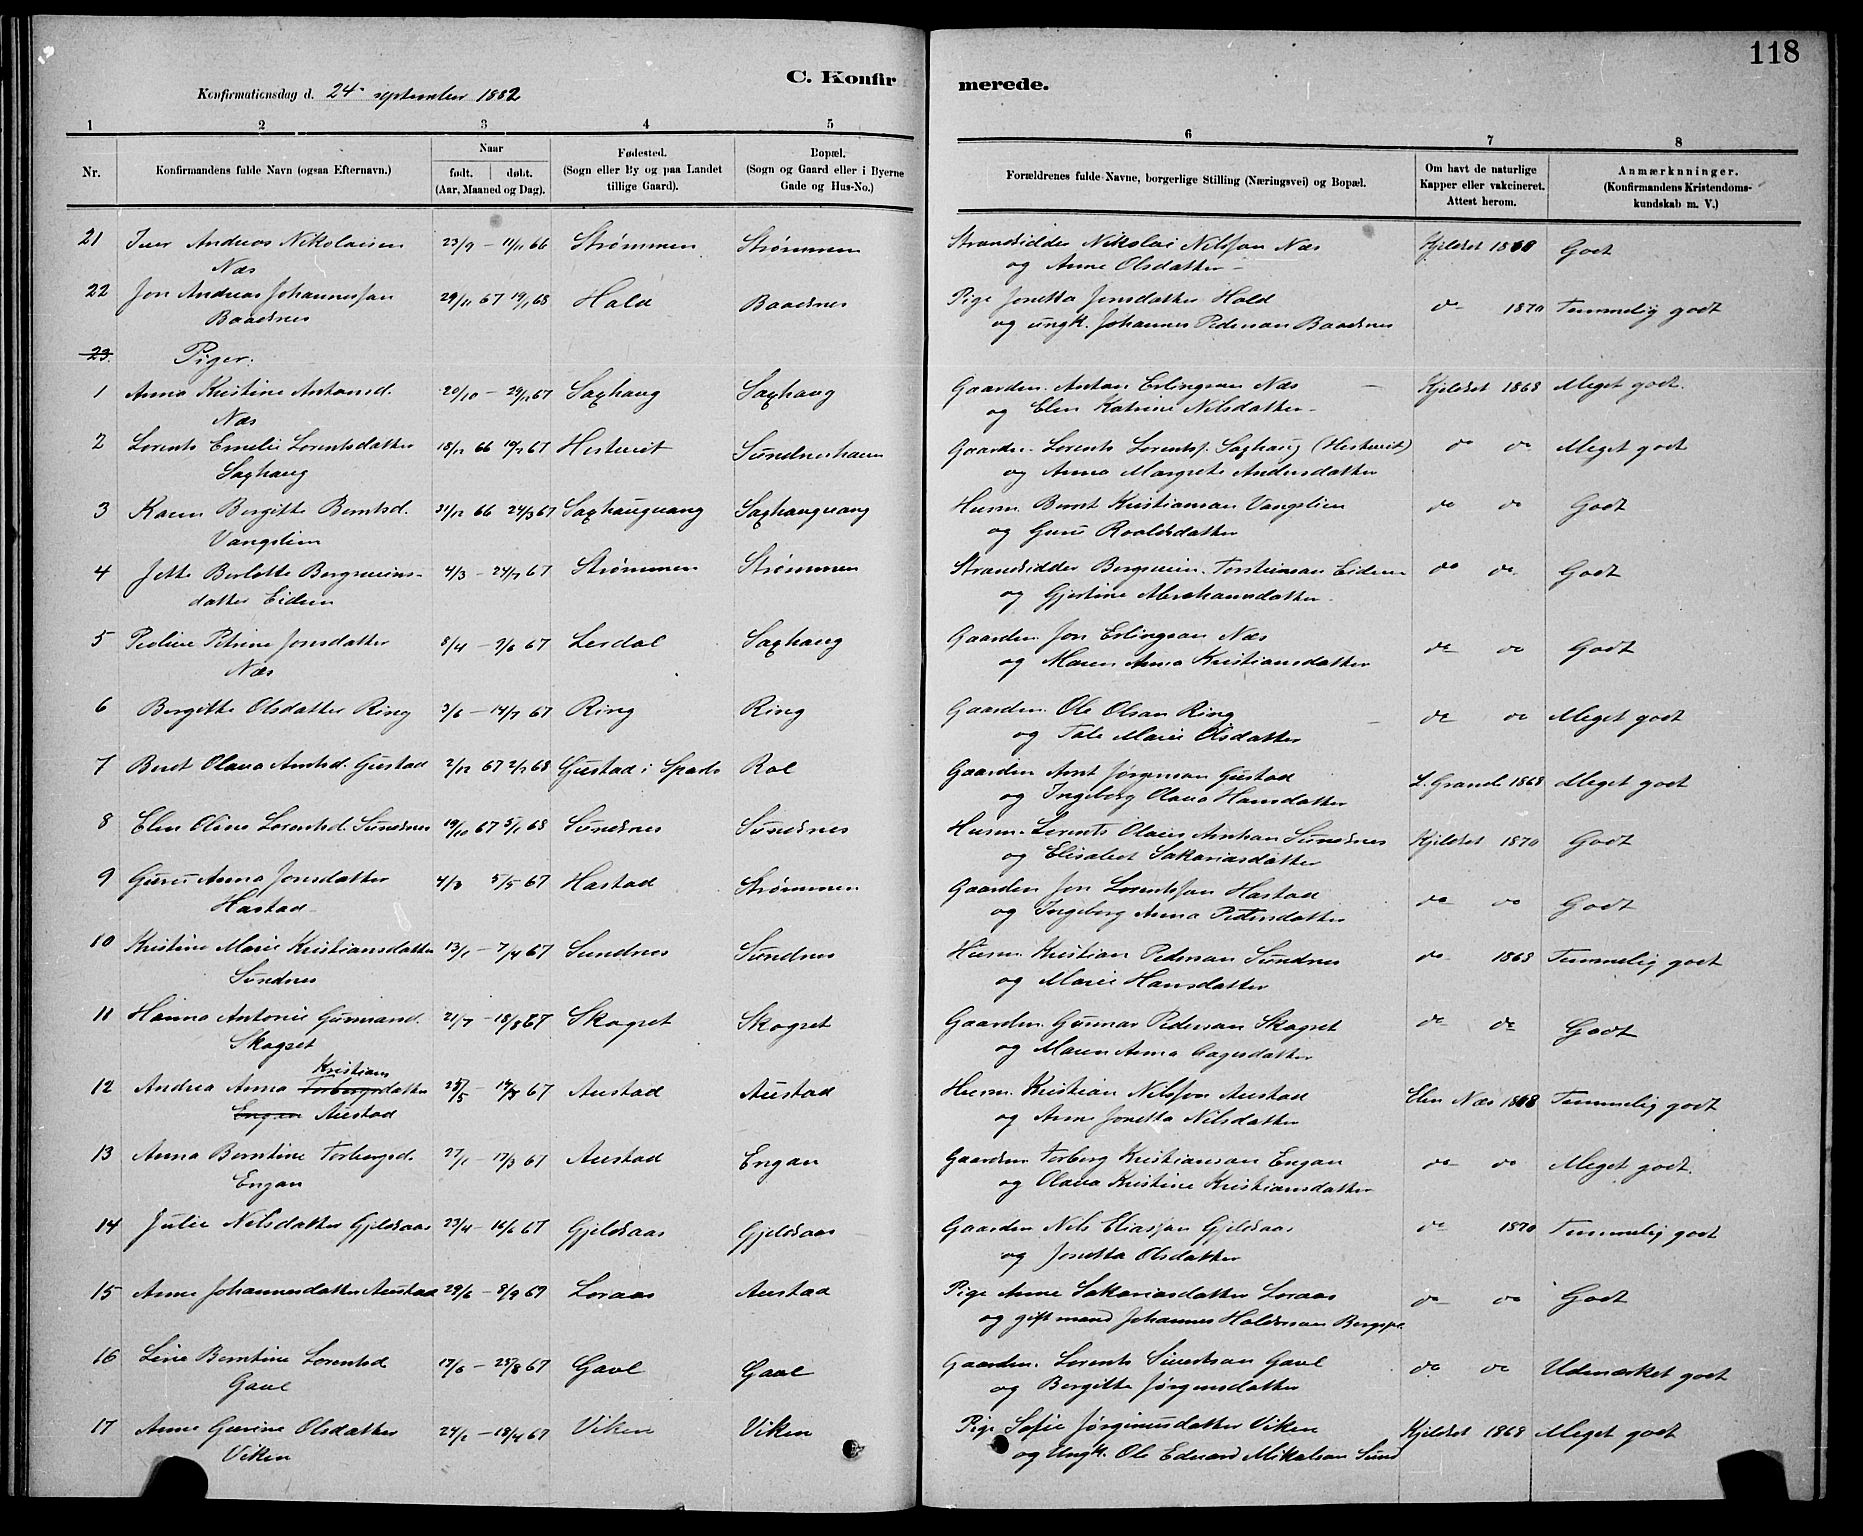 118
C. Konfir merede.
Konfirmationsdag d. 24de september 1882
1 2 3 4 5 6 7 8
Nr. Konfirmandens fulde Navn (ogsaa Efternavn.) Naar født. døbt. (Aar, Maaned og Dag). Fødested. (Sogn eller By og paa Landet tillige Gaard). Bopæl. (Sogn og Gaard eller i Byerne Gade og Hus-No.) Forældrenes fulde Navne, borgerlige Stilling (Næringsvei) og Bopæl. Om havt de naturlige Kapper eller vakcineret. Attest herom. Anmærknninger. (Konfirmandens Kristendomskundskab m. V.)
21 Iver Andreas Nikolaisen 23/9 – 11/11 66 Strømmen Strømmen Strandsidder Nikolai Nilssen Næs Kjeldset 1868 Godt
Næs og Anne Olsdatter
22 Jon Andreas Johannessen 29/11 67 19/1 68 Hald Baadsnes Pige Jonetta Jonsdatter Hald do 1870 Temmelig godt
Baadsnes og ungk. Johannes Pedersen Baadsnes
23. Piger.
1 Anna Kristine Antonsd. 20/10 – 29/12 67 Saxhaug Saxhaug Gaardm. Anton Erlingsen Næs Kjeldset 1868 Meget godt.
Næs og Elen Katrine Nilsdatter
2 Lorents Emelie Lorentsdatter 18/12 66 19/4 67 Hestveit Sundneshavn Gaardm. Lorents Lorentsf. Saxhaug (Hestveit) do do Meget godt
Saxhaug og Anna Margrete Andersdatter
3 Karen Bergitte Berntsd. 31/12 66 24/3 67 Saxhaugvang Saxhaugvang Husm. Bernt Kristiansen Vangslien do do Godt
Vangslien og Guru Roaldsdatter
4 Jette Berlotte Bergsveins- 4/3 – 24/7 67 Strømmen Strømmen Strandsidder Bergsvein Torsteinsen Eidem do do Godt
datter Eidem og Gjertine Abrahamsdatter
5 Peoline Petrine Jonsdatter 8/4 – 9/6 67 Lerdal Saxhaug Gaardm. Jon Erlingsen Næs do do Godt
Næs og Maren Anna Kristiansdatter
6 Bergitte Olsdatter Ring 3/6 – 14/7 67 Ring Ring Gaardm. Ole Olsen Ring do do Meget godt
og Tale Marie Olsdatter
7 Beret Olava Arntsd. Gustad 2/12 67 2/2 68 Gustad i Sparb. Rol Gaardm Arnt Jørgensen Gustad L. Grande 1868 Meget godt
og Ingeborg Olava Hansdatter
8 Elen Oline Lorentsd. Sundsnes 19/10 67 5/1 68 Sundsnes Sundsnes Husm. Lorents Olaus Arntsen Sundsnes Kjeldset 1870 Godt
og Elisabet Sakariasdatter
9 Guru Anna Jonsdatter 4/3 5/5 67 Hastad Strømmen Gaardm Jon Lorentssen Hastad do do Godt
Hastad og Ingeborg Anna Petersdatter
10 Kristine Marie Kristiansdatter 13/1 – 7/4 67 Sundnes Sundnes Husm. Kristian Pedersen Sundnes do 1868 Temmelig godt
Sundnes og Marie Hansdatter
11 Hanna Antonie Gunnarsd. 21/7 – 18/8 67 Skogset Skogset Gaardm. Gunnar Pedersen Skogset do do Godt
Skogset og Maren Anna Aagesdatter
Kristians
12 Andrea Anna Torbergsdatter 25/5 – 14/8 67 Austad Austad Husm. Kristian Nilsson Austad Elen Næs 1868 Temmelig godt
Engan Austad og Anne Jonetta Nilsdatter
13 Anna Berntine Torbergsd. 27/1 – 17/3 67 Austad Engan Gaardm Torberg Kristiansen Engan do do Meget godt.
Engan og Olava Kristine Kristiansdatter
14 Julie Nilsdatter Gjeldsaas 23/4 – 16/6 67 Gjeldsaas Gjeldsaas Gaardm Nils Eliassen Gjeldsaas do 1870 Temmelig godt
og Jonetta Olsdatter
15 Anne Johannesdatter Austad 29/6 – 8/9 67 Loraas Austad Pige Anne Sakariasdatter Loraas do do Godt
og gift mand Johannes Haldorsen
16 Line Berntine Lorentsd 17/6 – 25/8 67 Gavl Gavl Gaardm. Lorents Sivertsen Gavl do do Udmærket godt
Gavl og Bergitte Jørgensdatter
17 Anne Gurine Olsdatter 24/2 – 18/4 67 Viken Viken Pige Sofie Jørginusdatter Viken Kjeldset 1868 Meget godt
Viken og Ungk. Ole Edvard Mikalsen Sund